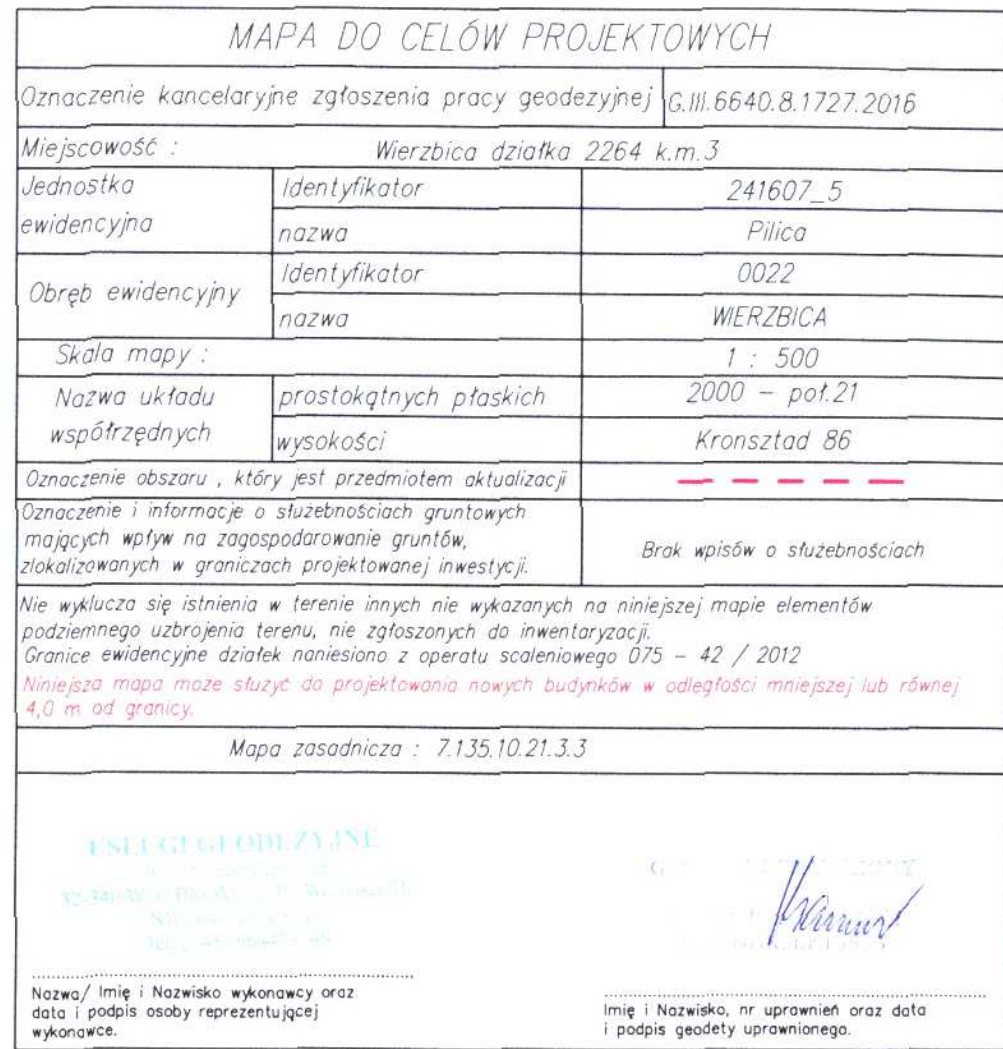 MAPA DO CELÓW PROJEKTOWYCH
Oznaczenie kancelaryjne zgłoszenia pracy geodezyjnej G.III.6640.8.1727.2016
Miejscowość : Wierzbica działka 2264 k.m.3
Jednostka ewidencyjna Identyfikator 241607_5
nazwa Pilica
Obręb ewidencyjny Identyfikator 0022
nazwa WIERZBICA
Skala mapy : 1 : 500
Nazwa układu współrzędnych prostokątnych płaskich 2000 – poł.21
wysokości Kronsztad 86
Oznaczenie obszaru , który jest przedmiotem aktualizacji
Oznaczenie i informacje o służebnościach gruntowych
mających wpływ na zagospodarowanie gruntów,
zlokalizowanych w graniczach projektowanej inwestycji.
Brak wpisów o służebnościach
Nie wyklucza się istnienia w terenie innych nie wykazanych na niniejszej mapie elementów
podziemnego uzbrojenia terenu, nie zgłoszonych do inwentaryzacji.
Granice ewidencyjne działek naniesiono z operatu scaleniowego 075 – 42 / 2012
Niniejsza mapa może służyć do projektowania nowych budynków w odległości mniejszej lub równej
4,0 m od granicy.
Mapa zasadnicza : 7.135.10.21.3.3
USŁUGI GEODEZYJNE
Nazwa/ Imię i Nazwisko wykonawcy oraz
data i podpis osoby reprezentującej
wykonawce.
Imię i Nazwisko, nr uprawnień oraz data
i podpis geodety uprawnionego.